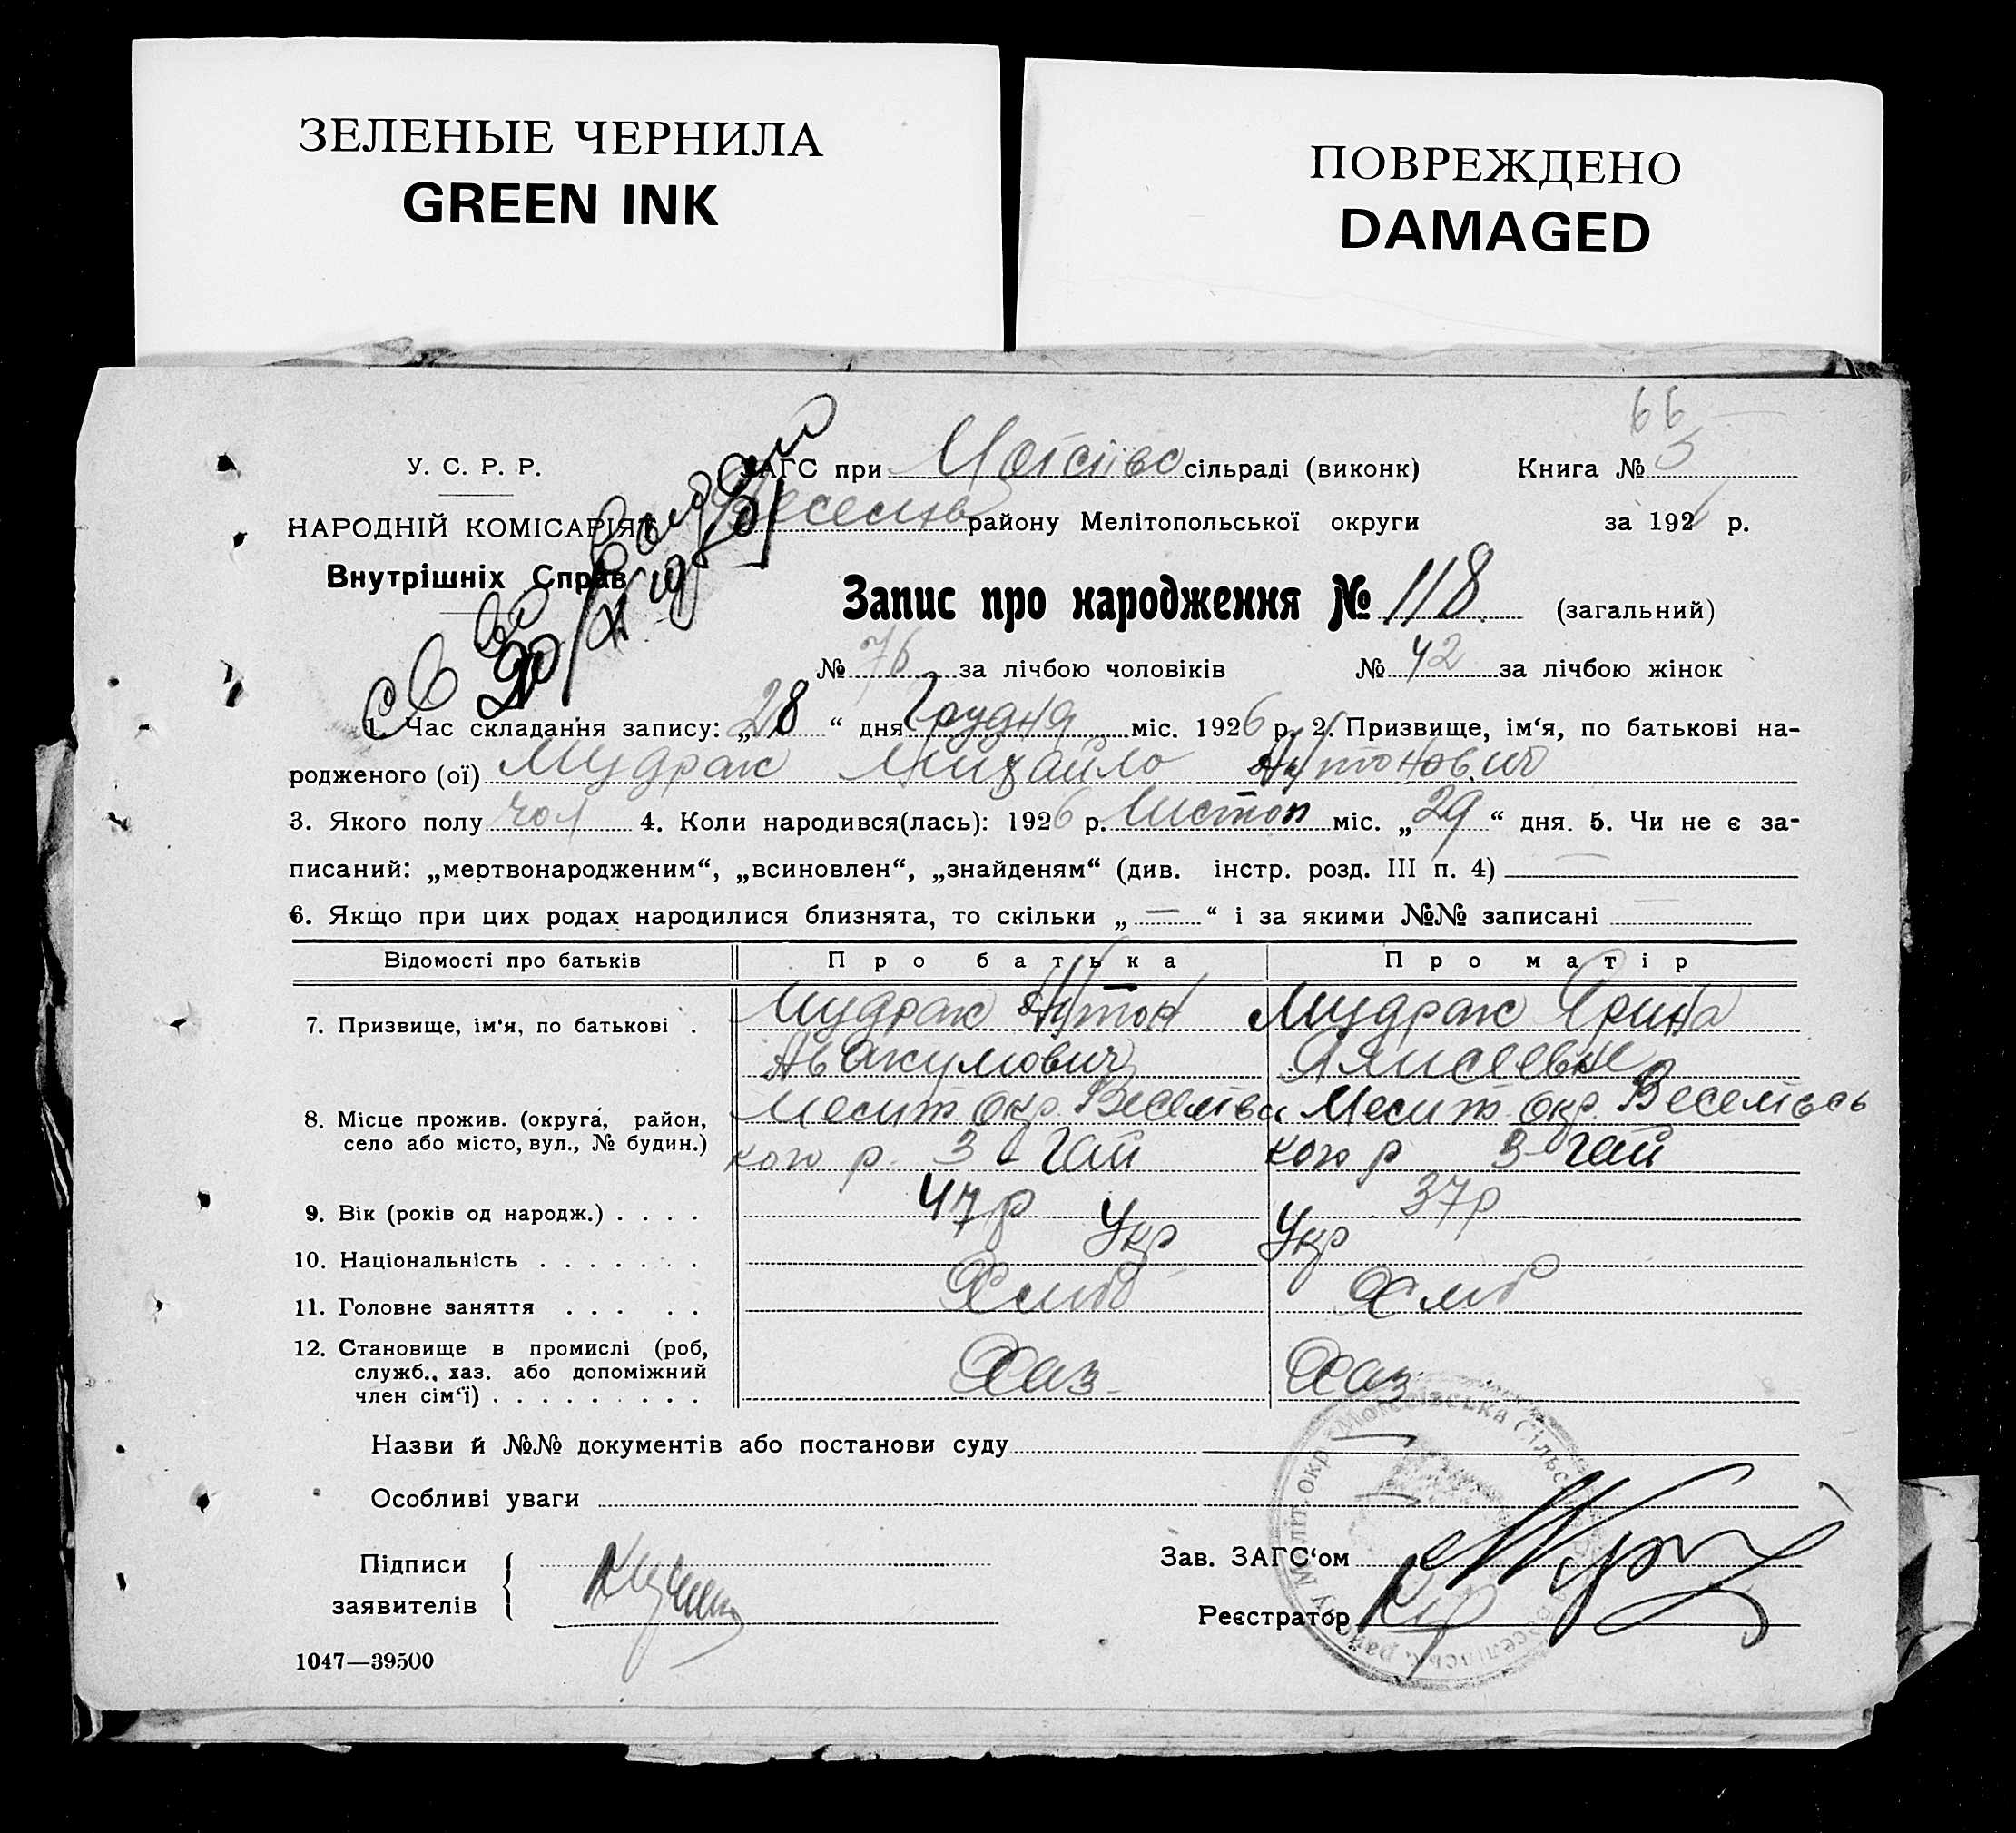 ЗЕЛЕНЫЕ ЧЕРНИЛА
GREEN INK
ПОВРЕЖДЕНО
DAMAGED
66
У. С. Р. Р.
ЗАГС при сільраді (виконк)
Книга № 5
НАРОДНІЙ КОМІСАРІЯТ
району Мелітопольської округи
за 192 р.
Внутрішніх Справ
Запис про народження № 118 (загальний)
№ 76 за лічбою чоловіків № 42 за лічбою жінок
1. Час складання запису: „28“ дня Грудня міс. 1926 р. 2. Призвище, ім‘я, по батькові на-
родженого (ої) Мудрак Михайло Антонович
3. Якого полу чол 4. Коли народився(лась): 1926 р. Листоп міс. „29“ дня. 5. Чи не є за-
писаний: „мертвонародженим“, „всиновлен“, „знайденям“ (див. інстр. розд. III п. 4) —
6. Якщо при цих родах народилися близнята, то скільки „—“ і за якими №№ записані —
Відомості про батьків Про батька Про матір
7. Призвище, ім‘я, по батькові . Мудрак Антон Мудрак Ярина
Авакумович
8. Місце прожив. (округа, район, Меліт окр. Веселівсь Меліт окр. Веселівсь
село або місто, вул., № будин.) кого р. 3 - Гай кого р 3-Гай
9. Вік (років од народж.) . . . . 47 р 37 р
10. Національність . . . . . . . Укр Укр
11. Головне заняття . . . . . Хліб Хліб
12. Становище в промислі (роб,
служб., хаз. або допоміжний Хаз Хаз
член сім‘ї) . . . . . . . . .
Назви й №№ документів або постанови суду —
Особливі уваги —
Підписи
заявителів
Зав. ЗАГС‘ом
Реєстратор
1047—39500